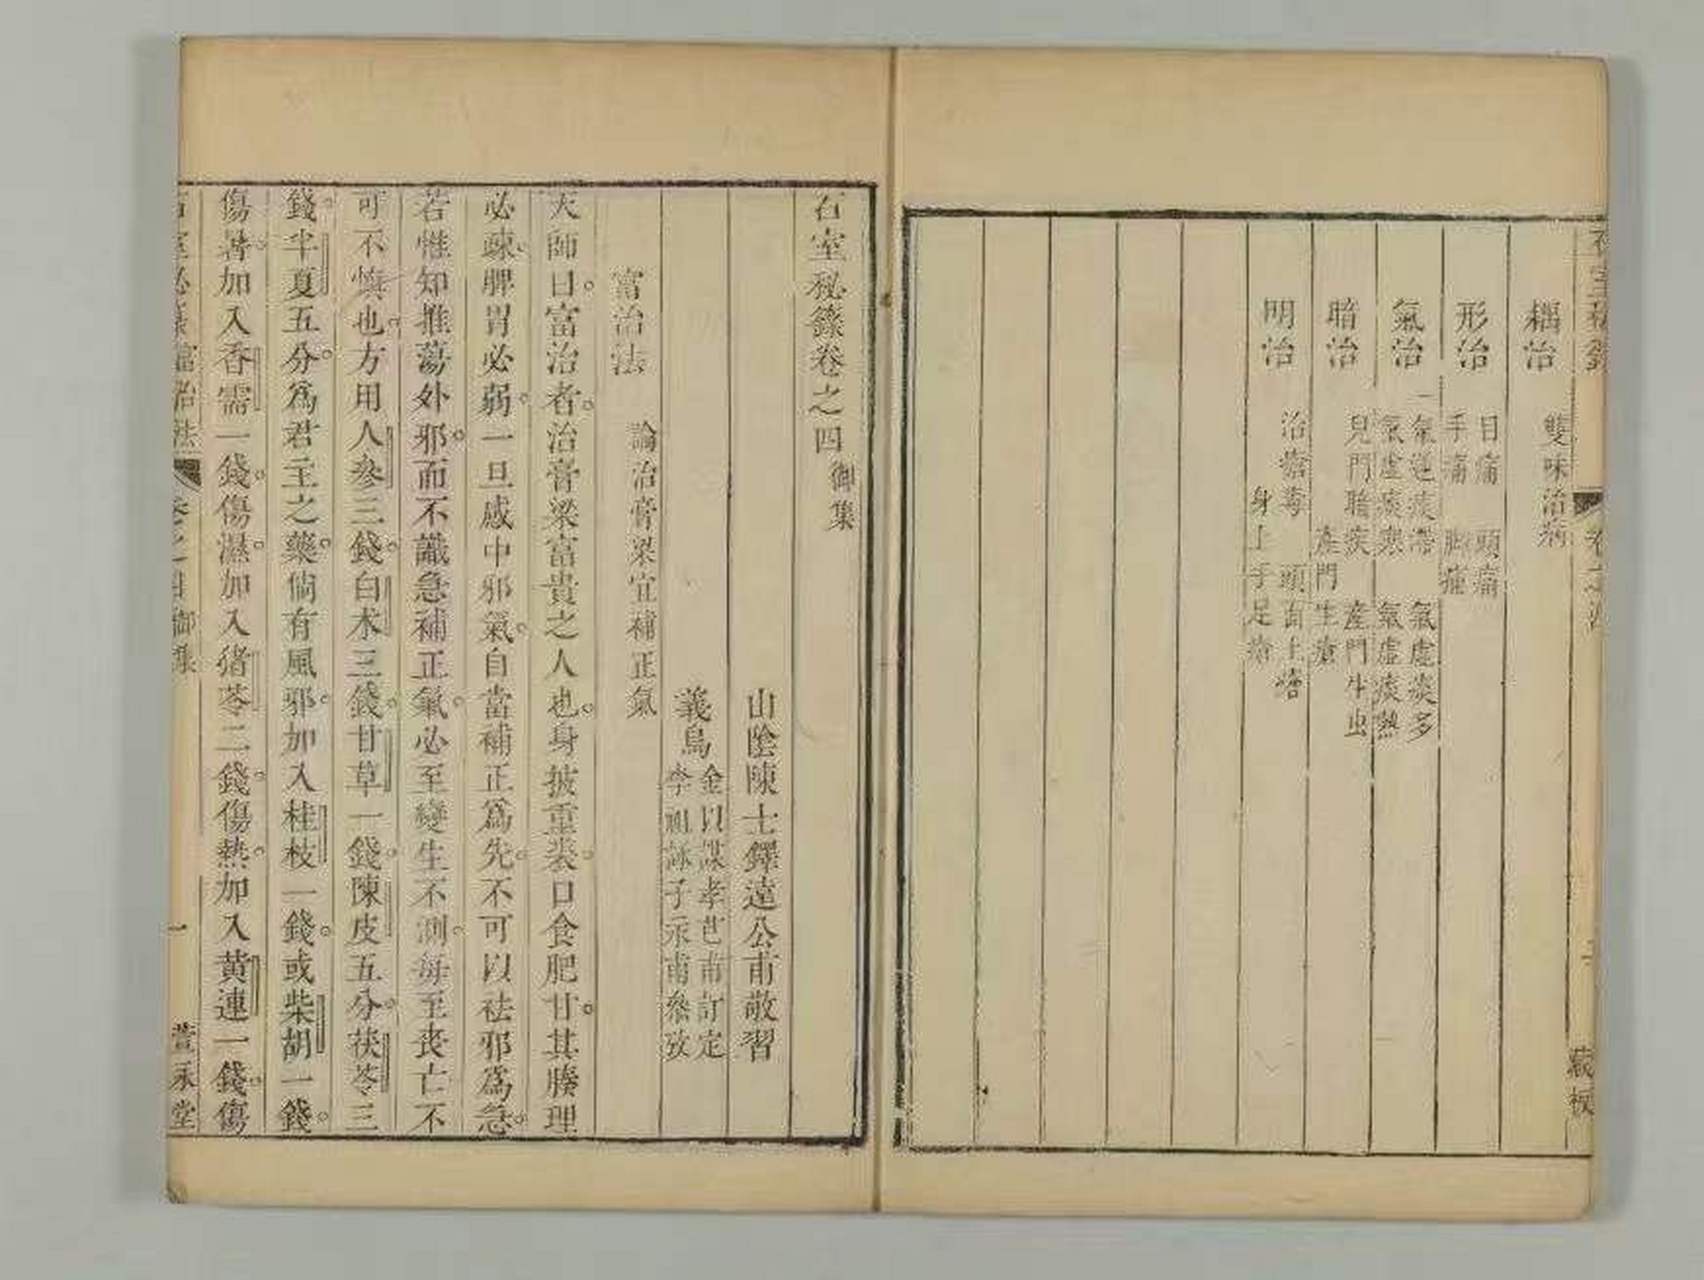 耦治 雙味治病
形治 目痛 頭痛
手痛 脚痛
氣治 氣逆痰滯 氣虛痰多
氣虛痰寒 氣虛痰熱
暗治 兒門暗疾 產門生虫
產門生瘡
明治 治瘡毒 頭面上瘡
身上手足瘡
藏板
石室秘籙卷之四 御集
山陰陳士鐸遠公甫敬習
義烏 金以謀孝芑甫訂定
李祖詠子永甫叅攷
富治法 論治膏梁宜補正氣
天師曰富治者治膏梁富貴之人也身披重裘口食肥甘其腠理
必疎脾胃必弱一旦感中邪氣自當補正爲先不可以祛邪爲急
若惟知推蕩外邪而不識急補正氣必至變生不測每至丧亡不
可不慎也方用人參三錢白术三錢甘草一錢陳皮五分茯苓三
錢半夏五分爲君主之藥倘有風邪加入桂枝一錢或柴胡一錢
傷暑加入香需一錢傷濕加入猪苓二錢傷熱加入黄連一錢傷
卷之四御集 一 萱永堂